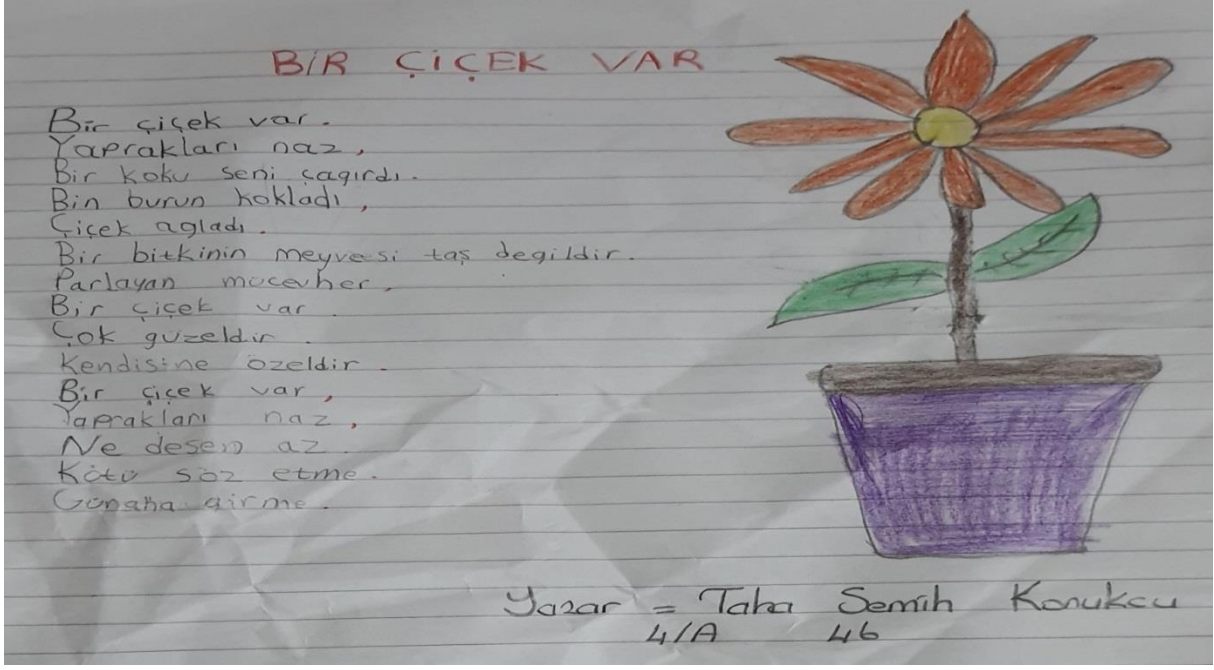 BİR ÇİÇEK VAR
Bir çiçek var.
Yaprakları naz,
Bir koku seni çagırdı.
Bin burun kokladı,
Çiçek agladı.
Bir bitkinin meyvesi taş degildir.
Parlayan mücevher,
Bir çiçek var.
Çok güzeldir.
Kendisine özeldir.
Bir çiçek var,
Yaprakları naz,
Ne desem az.
Kötü söz etme.
Günaha girme.
Yazar = Taha Semih Konukcu
4/A 46